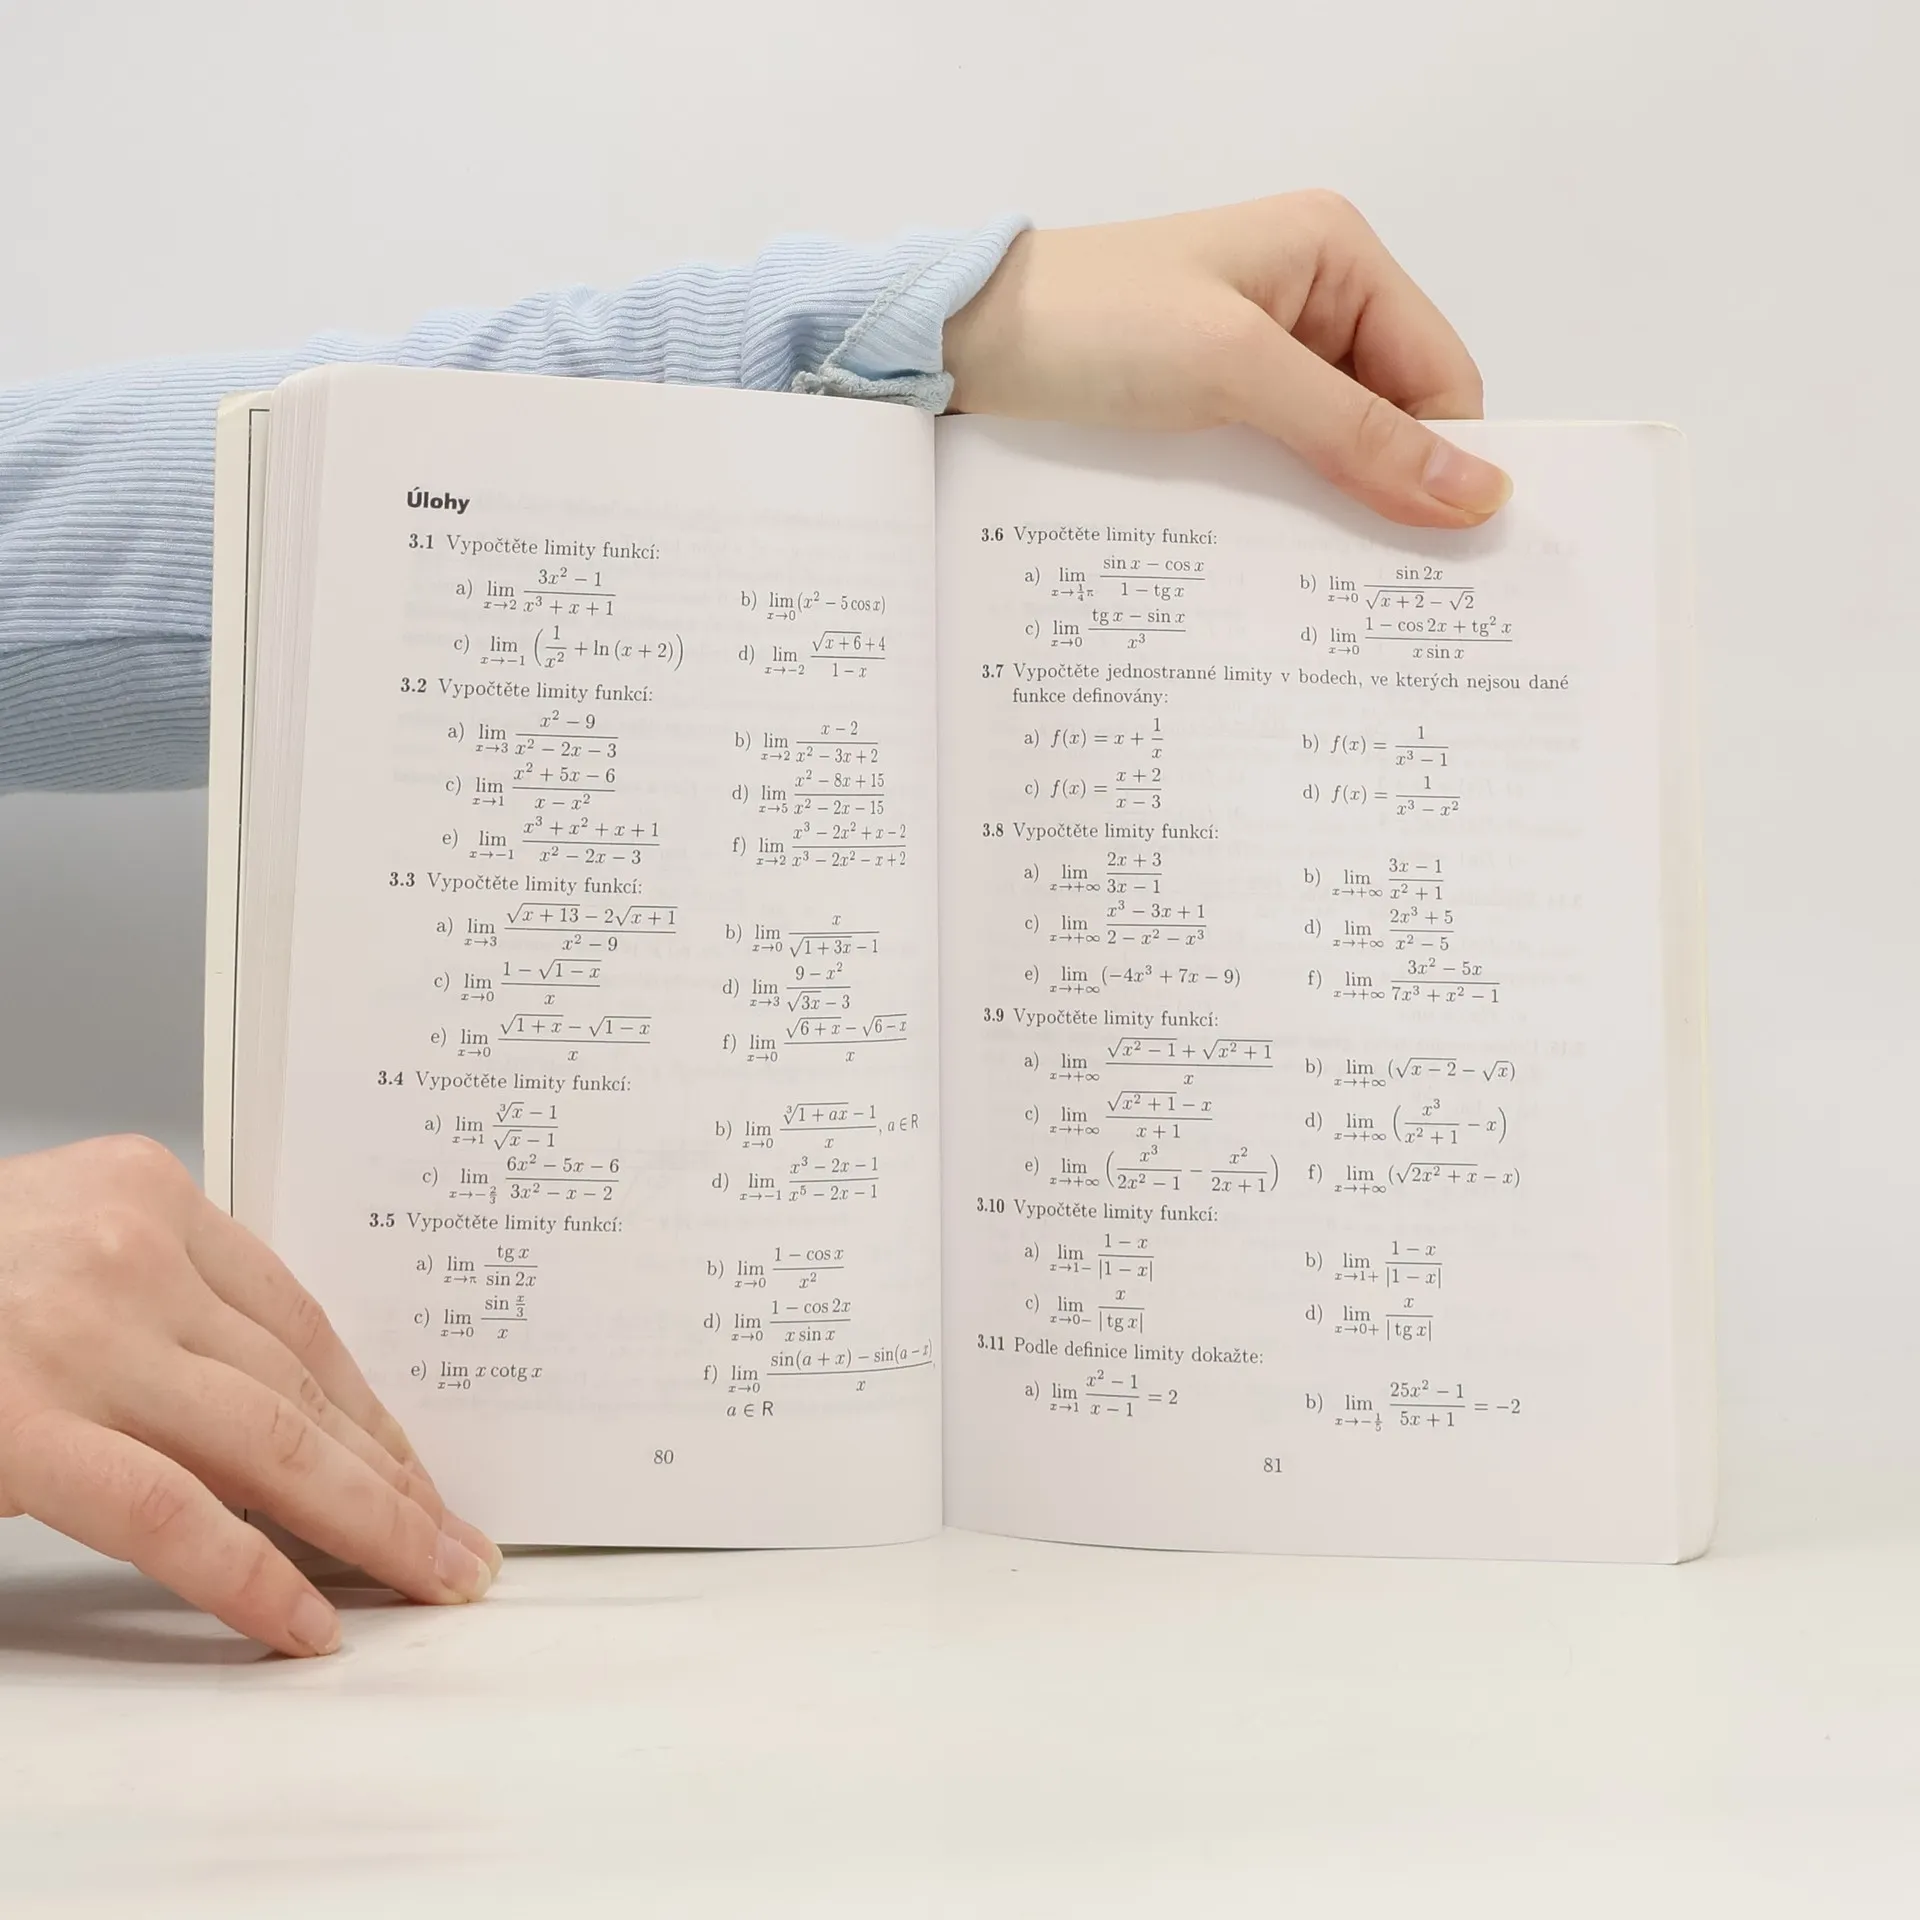 Úlohy
3.1 Vypočtěte limity funkcí:
a) lim_{x→2} (3x² − 1)/(x³ + x + 1) b) lim_{x→0} (x² − 5 cos x)
c) lim_{x→−1} (1/x² + ln (x + 2)) d) lim_{x→−2} (√(x + 6) + 4)/(1 − x)
3.2 Vypočtěte limity funkcí:
a) lim_{x→3} (x² − 9)/(x² − 2x − 3) b) lim_{x→2} (x − 2)/(x² − 3x + 2)
c) lim_{x→1} (x² + 5x − 6)/(x − x²) d) lim_{x→5} (x² − 8x + 15)/(x² − 2x − 15)
e) lim_{x→−1} (x³ + x² + x + 1)/(x² − 2x − 3) f) lim_{x→2} (x³ − 2x² + x − 2)/(x³ − 2x² − x + 2)
3.3 Vypočtěte limity funkcí:
a) lim_{x→3} (√(x + 13) − 2√(x + 1))/(x² − 9) b) lim_{x→0} x/(√(1 + 3x) − 1)
c) lim_{x→0} (1 − √(1 − x))/x d) lim_{x→3} (9 − x²)/(√(3x) − 3)
e) lim_{x→0} (√(1 + x) − √(1 − x))/x f) lim_{x→0} (√(6 + x) − √(6 − x))/x
3.4 Vypočtěte limity funkcí:
a) lim_{x→1} (∛x − 1)/(√x − 1) b) lim_{x→0} (∛(1 + ax) − 1)/x, a ∈ R
c) lim_{x→−2/3} (6x² − 5x − 6)/(3x² − x − 2) d) lim_{x→−1} (x³ − 2x − 1)/(x⁵ − 2x − 1)
3.5 Vypočtěte limity funkcí:
a) lim_{x→π} tg x/sin 2x b) lim_{x→0} (1 − cos x)/x²
c) lim_{x→0} (sin x/3)/x d) lim_{x→0} (1 − cos 2x)/(x sin x)
e) lim_{x→0} x cotg x f) lim_{x→0} (sin(a + x) − sin(a − x))/x,
a ∈ R
80
3.6 Vypočtěte limity funkcí:
a) lim_{x→¼π} (sin x − cos x)/(1 − tg x) b) lim_{x→0} sin 2x/(√(x + 2) − √2)
c) lim_{x→0} (tg x − sin x)/x³ d) lim_{x→0} (1 − cos 2x + tg² x)/(x sin x)
3.7 Vypočtěte jednostranné limity v bodech, ve kterých nejsou dané
funkce definovány:
a) f(x) = x + 1/x b) f(x) = 1/(x³ − 1)
c) f(x) = (x + 2)/(x − 3) d) f(x) = 1/(x³ − x²)
3.8 Vypočtěte limity funkcí:
a) lim_{x→+∞} (2x + 3)/(3x − 1) b) lim_{x→+∞} (3x − 1)/(x² + 1)
c) lim_{x→+∞} (x³ − 3x + 1)/(2 − x² − x³) d) lim_{x→+∞} (2x³ + 5)/(x² − 5)
e) lim_{x→+∞} (−4x³ + 7x − 9) f) lim_{x→+∞} (3x² − 5x)/(7x³ + x² − 1)
3.9 Vypočtěte limity funkcí:
a) lim_{x→+∞} (√(x² − 1) + √(x² + 1))/x b) lim_{x→+∞} (√(x − 2) − √x)
c) lim_{x→+∞} (√(x² + 1) − x)/(x + 1) d) lim_{x→+∞} (x³/(x² + 1) − x)
e) lim_{x→+∞} (x³/(2x² − 1) − x²/(2x + 1)) f) lim_{x→+∞} (√(2x² + x) − x)
3.10 Vypočtěte limity funkcí:
a) lim_{x→1−} (1 − x)/|1 − x| b) lim_{x→1+} (1 − x)/|1 − x|
c) lim_{x→0−} x/| tg x| d) lim_{x→0+} x/| tg x|
3.11 Podle definice limity dokažte:
a) lim_{x→1} (x² − 1)/(x − 1) = 2 b) lim_{x→−1/5} (25x² − 1)/(5x + 1) = −2
81